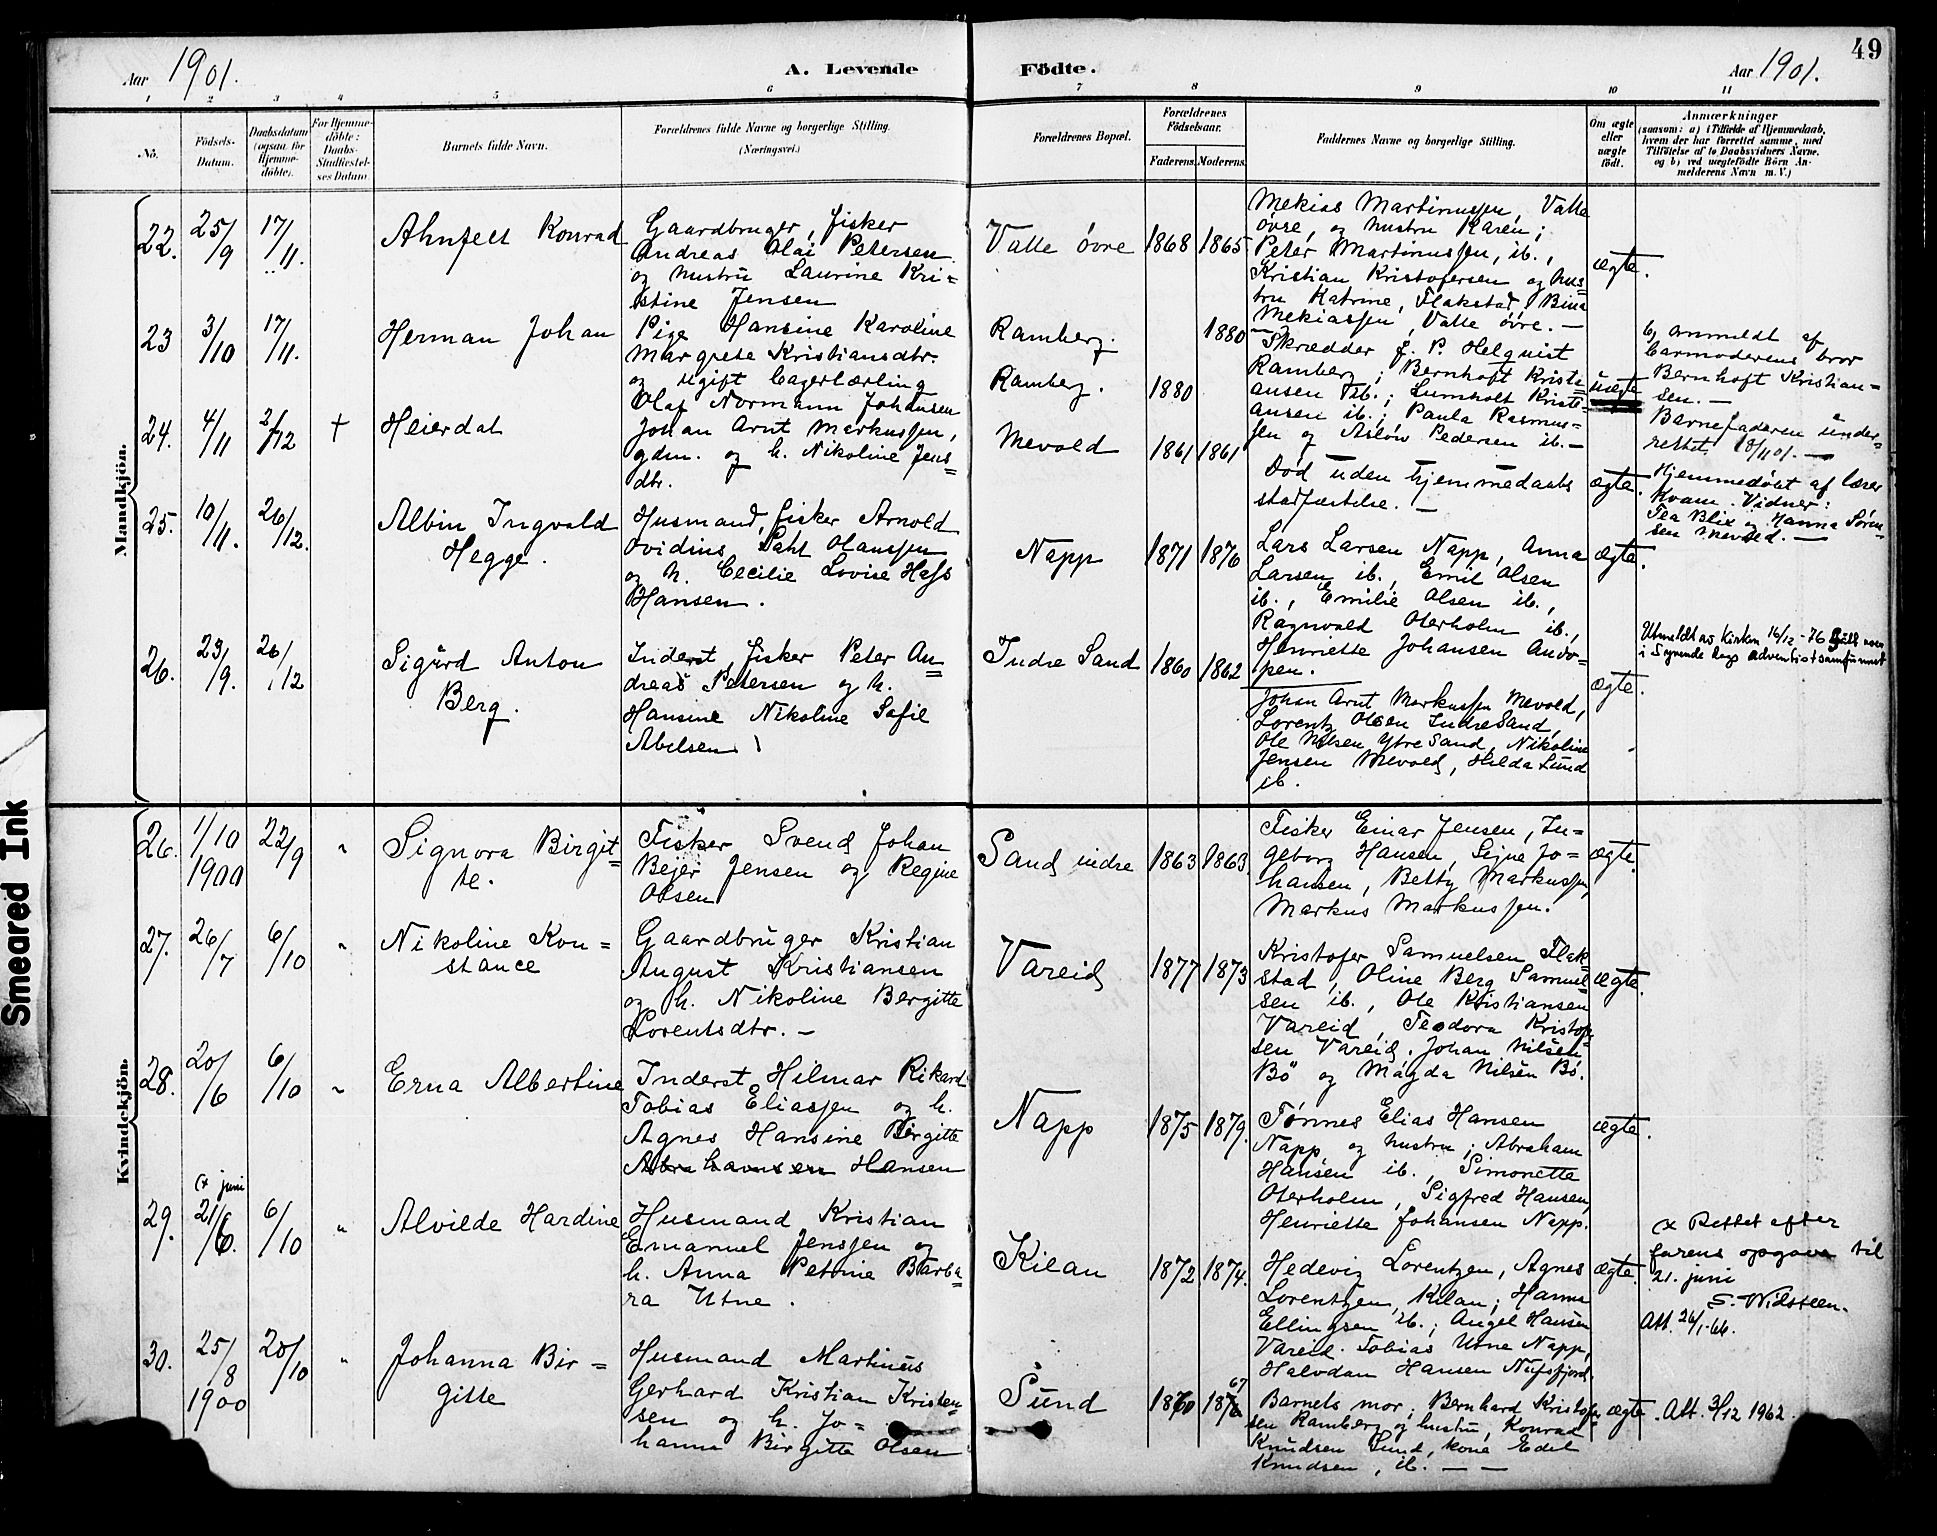 49
Aar 1901.
A. Levende Födte.
Aar 1901.
1 2 3 4 5 6 7 8 9 10 11
No.
Födsels-Datum.
Daabsdatum (ogsaa for Hjemme-döbte).
For Hjemme-döbte: Daabs-Stadfæstel-ses Datum
Barnets fulde Navn.
Forældrenes fulde Navne og borgerlige Stilling.
(Næringsvei.)
Forældrenes Bopæl.
Forældrenes Födselsaar.
Faderens. Moderens.
Faddernes Navne og borgerlige Stilling.
Om ægte eller uægte födt.
Anmærkninger
(saasom: a) i Tilfælde af Hjemmedaab,
hvem der har forrettet samme, med
Tilföielse af to Daabsvidners Navne,
og b) ved uægtefödte Börn An-
melderens Navn m. V.)
Mandkjön.
22. 25/9 17/11.
Ahnfelt Konrad
Gaardbruger, fisker
Andreas Olai Petersen
og hustru Laurine Kri-
stine Jensen
Valle övre
1868 1865
Mekias Martinussen, Valle
övre, og hustru Karen;
Peter Martinussen, ib.,
Kristian Kristofersen og hus-
tru Katrine, Flakstad, Bina
Mekiassen, Valle övre. —
ægte.
23 3/10 17/11.
Herman Johan
Pige Hansine Karoline
Margrete Kristiansdtr.
og ugift bagerlærling
Olaf Normann Johansen
Ramberg.
Ramberg.
1880
1880
Skrædder J. P. Helquist
Ramberg; Bernhoft Kristi-
ansen ib.; Lumholt Kristi-
ansen ib.; Paula Rasmus-
sen og Aslöv Pedersen ib. —
uægte
b, anmeldt af
barmoderens bror
Bernhoft Kristian-
sen. —
Barnefaderen under-
rettet 18/11 01. —
24. 4/11 2/12 +
Heierdal
Johan Arnt Markussen,
gdm. og h. Nikoline Jens-
dtr.
Mevold
1861 1861
Död uden hjemmedaabs
stadfæstelse. —
ægte.
Hjemmedöbt af lærer
Kvam. Vidner:
Tea Blix og Hanna Sören-
sen Mevold. —
25. 10/11. 26/12.
Albin Ingvald
Hegge.
Husmand, fisker Arnold
Ovidius Dahl Hanssen
og h. Cecilie Lovise Hass
Hansen.
Napp
1871 1876
Lars Larsen Napp, Anna
Larsen ib., Emil Olsen
ib., Emilie Olsen ib.,
Ragnvald Oterholm ib.,
Henriette Johansen Ando-
pen.
ægte.
26. 23/9. 26/12
Sigurd Anton
Berg.
Inderst, fisker Peter An-
dreas Petersen og h.
Hansine Nikoline Sofie
Abelsen
Indre Sand
1860 1862
Johan Arnt Markussen Mevold,
Lorentz Olsen Indre Sand,
Ole Nilsen Ytre Sand, Nikoline
Jensen Mevold, Hilda Lund
ib.
ægte.
Utmeldt av Kirken 16/12-76
i Syvende dags adventistsamfunnet
Kvindekjön.
26. 1/10 1900 22/9 "
Signora Birgit-
te.
Fisker Svend Johan
Bejer Jensen og Regine
Olsen
Sand indre
1863 1863.
Fisker Einar Jensen, In-
geborg Hansen, Signe Jo-
hansen, Betty Markussen,
Markus Markussen.
ægte.
27. 26/7 6/10 "
Nikoline Kon-
stance
Gaardbruger Kristian
August Kristiansen
og h. Nikoline Bergitte
Lorentsdtr. —
Vareid
1877 1873
Kristofer Samuelsen Flak-
stad, Oline Berg Samuel-
sen ib., Ole Kristiansen
Vareid, Teodora Kristof-
sen Vareid. Johan Nilsen
Bö og Magda Nilsen Bö.
ægte.
28. 20/6 6/10 "
Erna Albertine
Inderst Hilmar Rikard
Tobias Eliassen og h.
Agnes Hansine Birgitte
Abrahamsen Hansen
Napp
1875 1879.
Tönnes Elias Hansen
Napp og hustru; Abraham
Hansen ib., Simonette
Oterholm, Sigfred Hansen,
Henriette Johansen Napp.
ægte.
x juni
29. 21/6. 6/10 "
Alvilde Hardine
Husmand Kristian
Emanuel Jenssen og
h. Anna Petrine Barba-
ra Utne.
Kilan
1872 1874.
Hedevig Lorentzen, Agnes
Lorentzen, Kilan; Hanna
Ellingsen ib.; Angel Hansen
Vareid. Tobias Utne Napp,
Halvdan Hansen Nufsfjord.
ægte.
x Rettet efter
farens opgave til
21. juni
S. Widsteen.
Att. 26/1-66.
30. 25/8 1900 20/10 "
Johanna Bir-
gitte
Husmand Martinus
Gerhard Kristian Kristen-
sen og h. Jo-
hanna Birgitte Olsen
Sund
1860 1876 67
Barnets mor; Bernhard Kristof-
sen Ramberg og hustru, Konrad
Knudsen Sund, kone Edel
Knudsen, ib. — —
ægte.
Att. 3/12 1962.
Smeared Ink